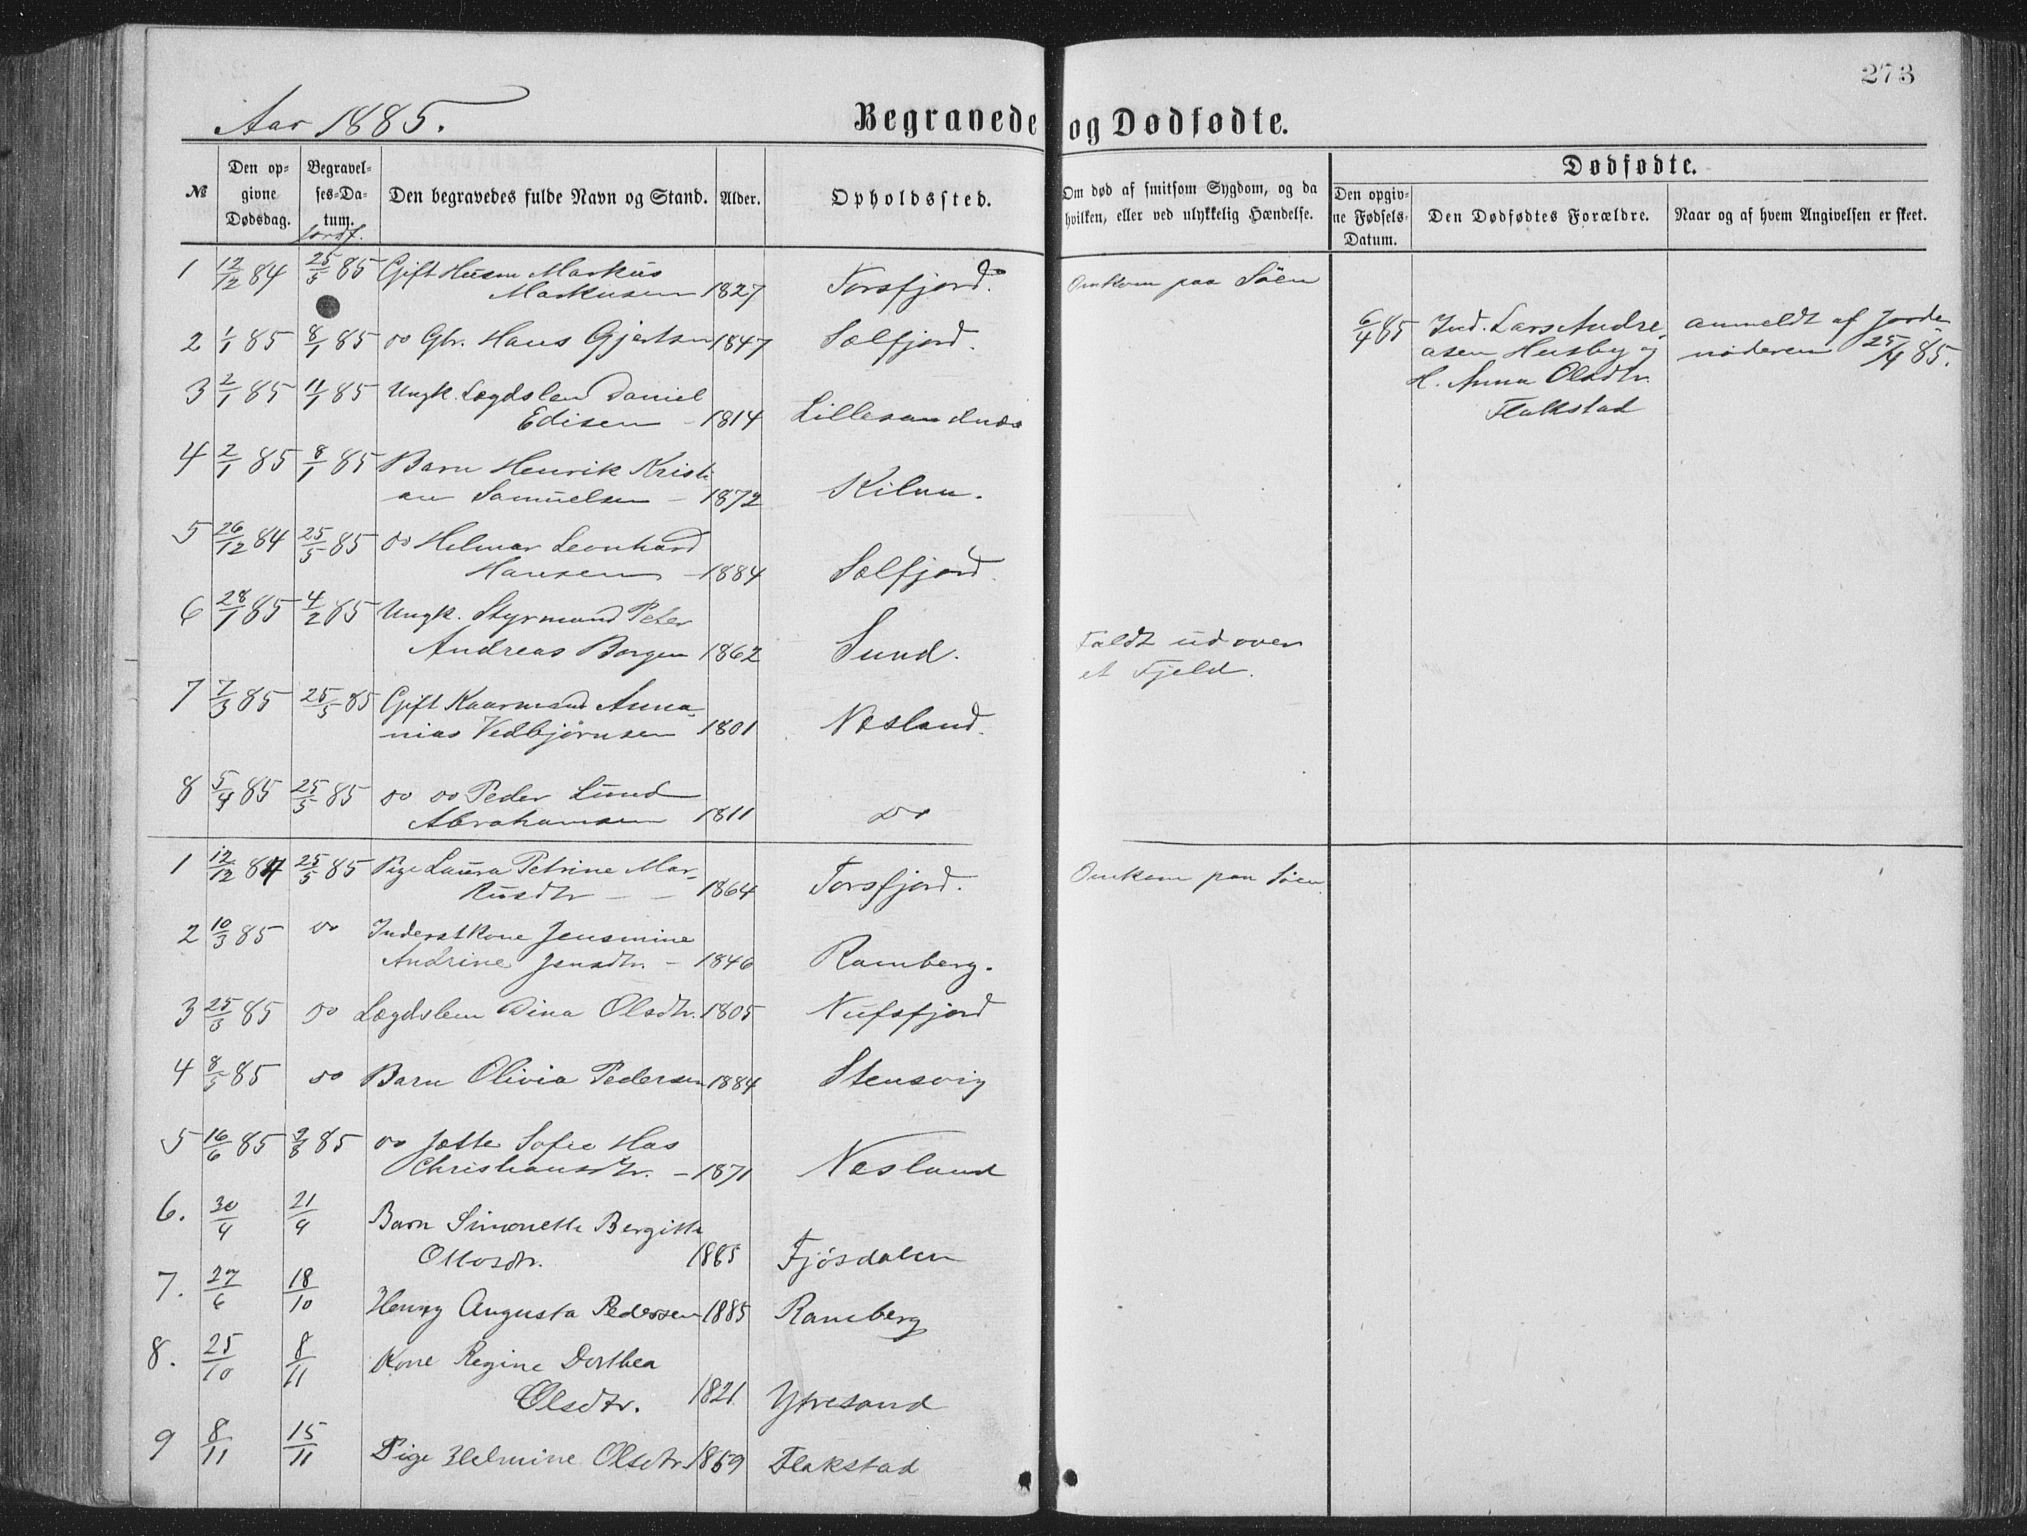 273
Aar 1885.
Begravede og Dødfødte.
№
Den op-
givne
Dødsdag.
Begravel-
ses-Da-
tum.
Jordf.
Den begravedes fulde Navn og Stand.
Alder.
Opholdssted.
Om død af smitsom Sygdom, og da
hvilken, eller ved ulykkelig Hændelse.
Dødfødte.
Den opgiv-
ne Fødsels-
Datum.
Den Dødfødtes Forældre.
Naar og af hvem Angivelsen er skeet.
1 12/12 84 25/5 85 Gift Husm Markus
Markusen 1827 Torsfjord. Omkom paa Söen
2 1/1 85 8/1 85 do Gbr. Hans Gjertsen 1847 Sælfjord.
6/4 85 Ind. Lars Andre- anmeldt af Jorde-
asen Husby og moderen 25/4 85.
H. Anna Olsdtr.
Flakstad
3 2/1 85 11/1 85 Ungk. Lægdslem Daniel
Edisen - 1814 Lillesandnæs
4 2/1 85 8/1 85 Barn Henrik Kristi
an Samuelsen - 1872 Kilan.
5 26/12 84 25/5 85 do Helmar Leonhard
Hansen - 1884 Sælfjord.
6 28/1 85 4/2 85 Ungk. Styrmand Peter
Andreas Borgen 1862 Sund. Faldt ud over
et Fjeld.
7 7/3 85 25/5 85 Gift Kaarmand Anna-
nias Vedbjørnsen 1801 Næsland.
8 5/4 85 25/5 85 do do Peder Lund
Abrahamsen 1811 do
1 12/12 84 25/5 85 Pige Laura Petrine Mar-
kusdtr - - 1864 Torsfjord. Omkom paa Söen
2 10/3 85 do Inderstkone Jensmine
Andrine Jensdtr. - 1846 Ramberg.
3 25/3 85 do Lægdslem Dina Olsdtr. 1805 Nufsfjord
4 8/5 85 do Barn Olivia Pedersen 1884 Stensvig
5 16/6 85 2/8 85 do Jette Sofie Has
Christiansdtr. - 1871 Næsland
6. 30/4 21/9 Barn Simonette Bergitte
Ottosdtr. 1885 Fjösdalen
7. 27/6 18/10 Henny Augusta Pedersen 1885 Ramberg
8. 25/10 8/11 Kone Regine Dorthea
Olsdtr. 1821 Ytresand
9 8/11 15/11 Pige Helmine Olsdtr. 1869 Flakstad